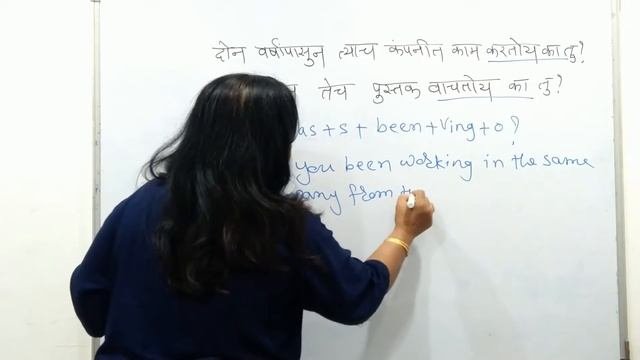 दोन वर्षापासुन त्याच कंपनीत काम करतोय का तु?
तेच पुस्तक वाचतोय का तु?
as + s + been + Ving + o ?
you been working in the same
pany from t